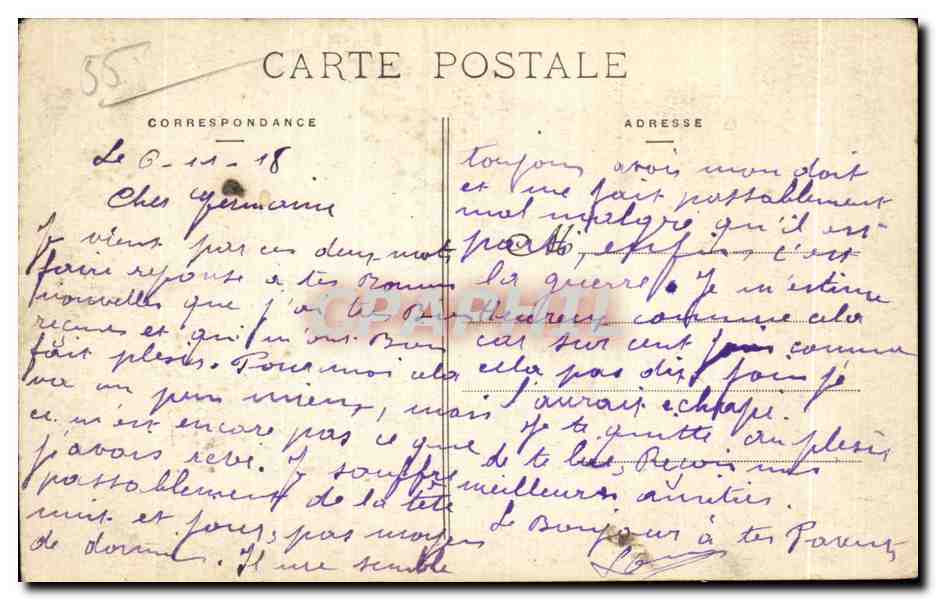 55
CARTE POSTALE
CORRESPONDANCE
ADRESSE
Le 6-11-18
Cher Germaine
Je vient par ces deux mots
faire reponse a tes Bonnes
nouvelles que j'ai tes Bien
reçues et qui m'ont Bien
fait plesir. Pour moi cela
va un peu mieux, mais
ce n'est encore pas ce que
j'avais revé. Je souffre
passablement de la tete
nuit et jour, pas moyen
de dormir. Il me semble
toujours avoir mon doit
et me fait passablement
mal malgre qu'il est
parti, enfin c'est
la guerre. Je m'estime
heureux comme cela
car sur cent fois comme
cela pas dix fois je
l'aurait echapé.
Je te quitte au plesir
de te lire, Reçois mes
meilleurs amitiés
Le Bonjour à tes Parents
M
CPAPHIL